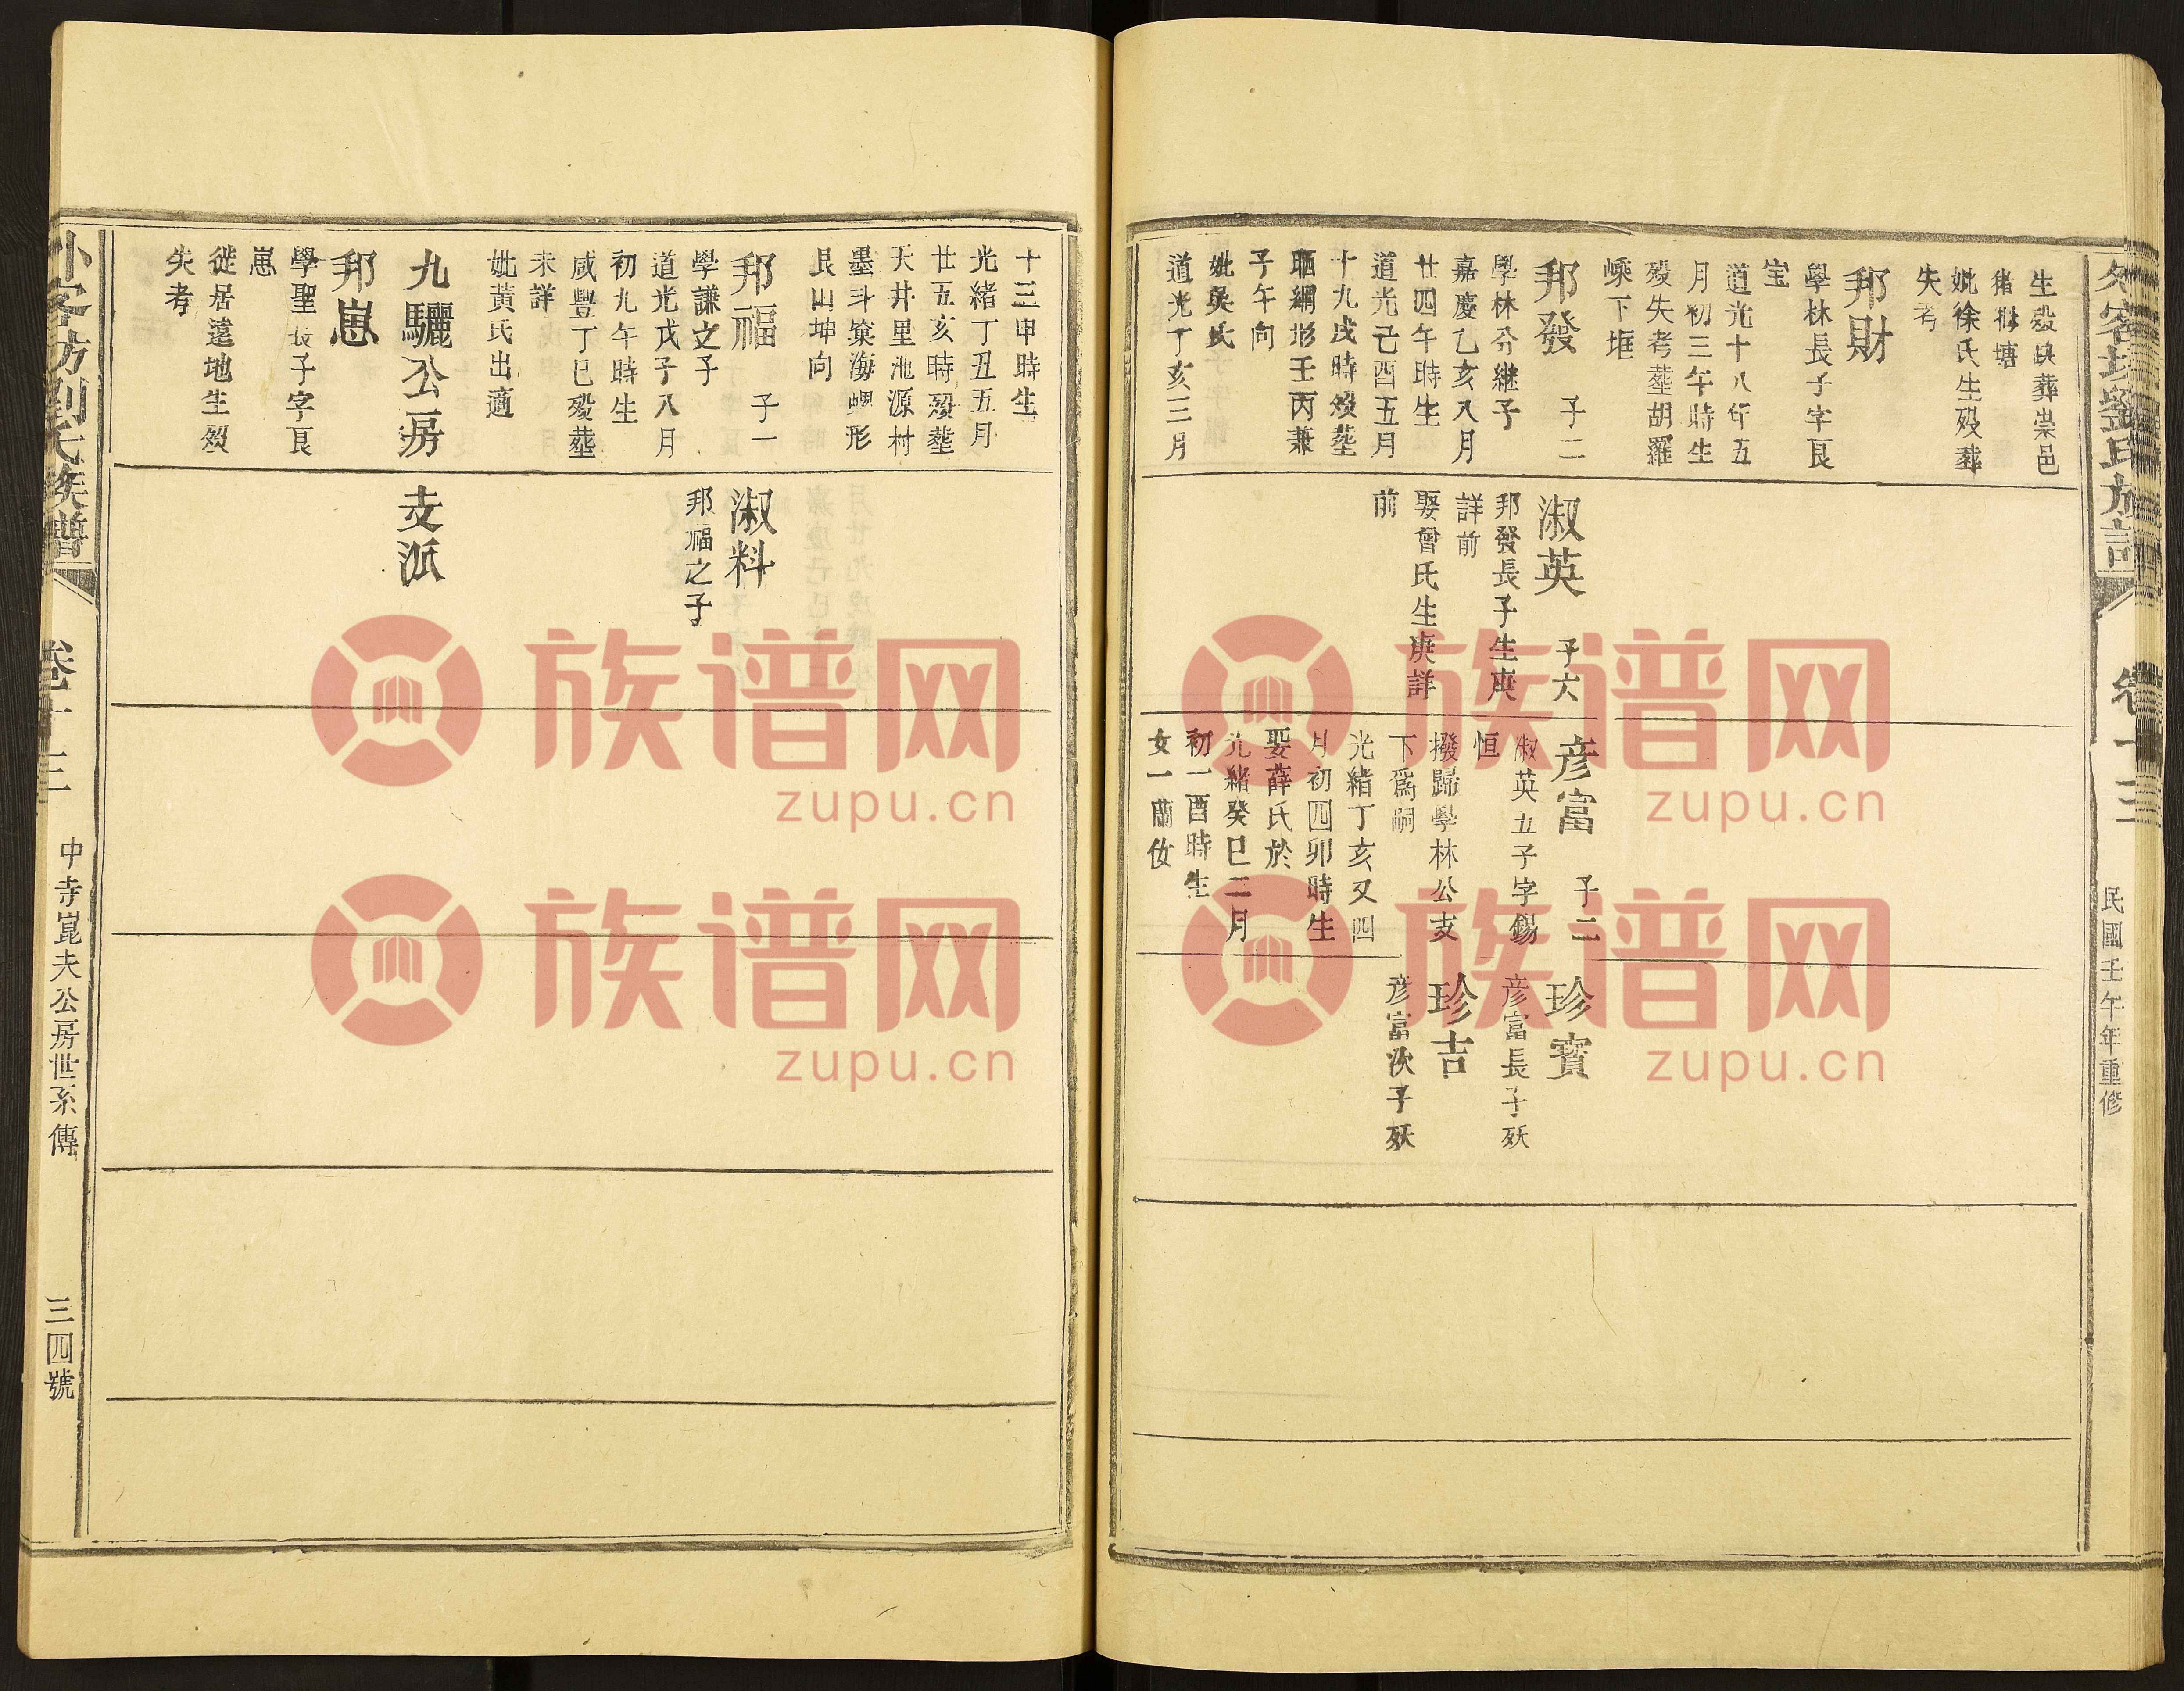 卷十三
民國壬午年重修
生殁缺葬崇邑
塘
妣徐氏生殁葬
失考
邦財
學林長子字良
宝
道光十八年五
月初三午時生
殁失考葬胡羅
嵊下堆
邦發 子二
學林分継子
嘉慶乙亥八月
廿四午時生
道光己酉五月
十九戌時殁葬
晒網形壬丙兼
子午向
妣吳氏
道光丁亥三月
淑英 子六
邦發長子生庚
詳前
娶曾氏生庚詳
前
彦富 子二
淑英五子字錫
恒
撥歸學林公支
下爲嗣
光緒丁亥又四
月初四卯時生
娶薛氏於
光緒癸巳二月
初一酉時生
女一蘭攸
珍寳
彦富長子殀
珍吉
彦富次子殀
十三申時生
光緒丁丑五月
廿五亥時殁葬
天井里池源村
墨斗窠海螺形
艮山坤向
邦福 子一
學謙之子
道光戊子八月
初九午時生
咸豐丁巳殁葬
未詳
妣黃氏出適
淑料
邦福之子
九驪公房 支派
邦崽
學聖長子字良
崽
從居遠地生殁
失考
劉氏族譜
卷十三
中寺崑夫公房世系傳
三四號
族谱网
zupu.cn
族谱网
zupu.cn
族谱网
zupu.cn
族谱网
zupu.cn